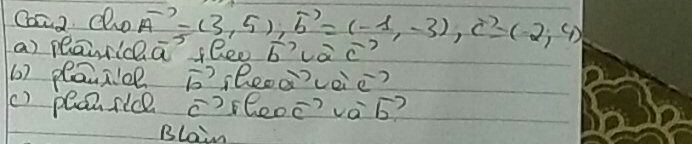 Câu 2. Cho A⃗ = (3, 5), b⃗ = (-1, -3), c⃗ = (-2, 4)
a) phân tích a⃗ theo b⃗ và c⃗
b) phân tích b⃗ theo a⃗ và c⃗
c) phân tích c⃗ theo c⃗ và b⃗
Blàm